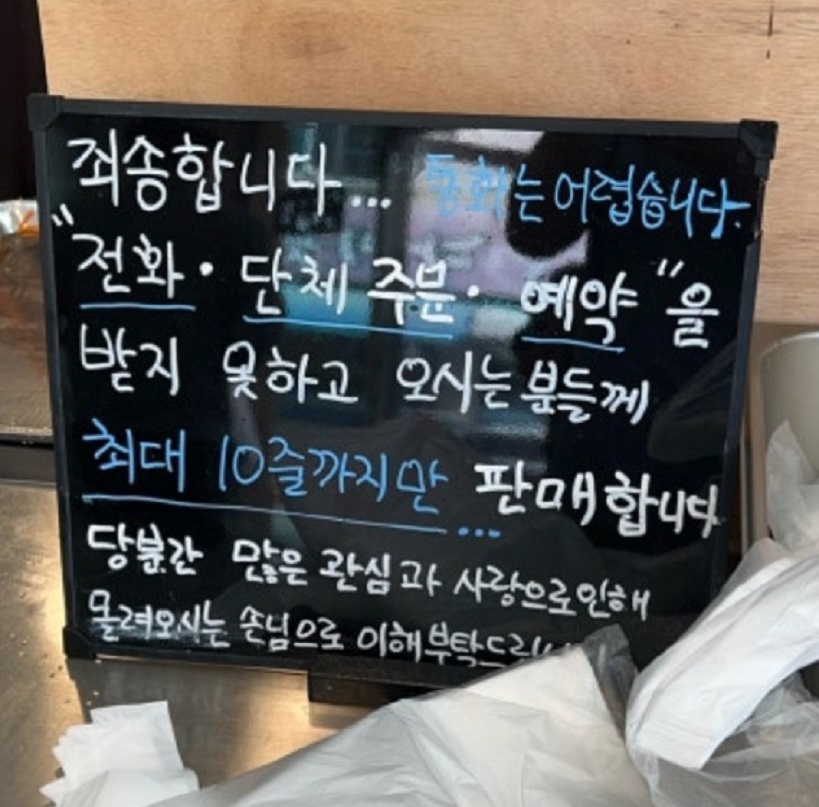 죄송합니다... 통화는 어렵습니다.
"전화·단체 주문·예약"을
받지 못하고 오시는 분들께
최대 10줄까지만 판매합니다
...
당분간 많은 관심과 사랑으로인해
몰려오시는 손님으로 이해부탁드립